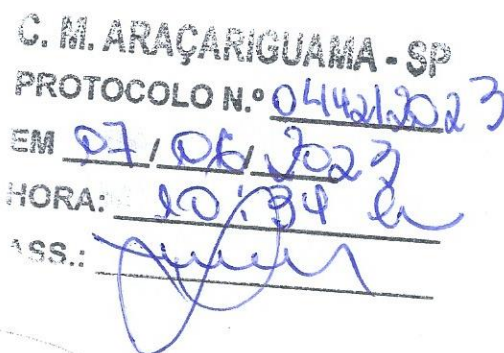 C. M. ARAÇARIGUAMA - SP
PROTOCOLO N.º 0442/2023
EM 07/06/2023
HORA: 10:34 h
ASS.: